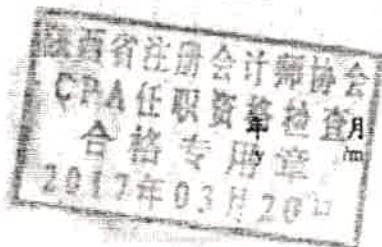 陕西省注册会计师协会
CPA任职资格检查
合格专用章
2017年03月20日
年 月
/y /m